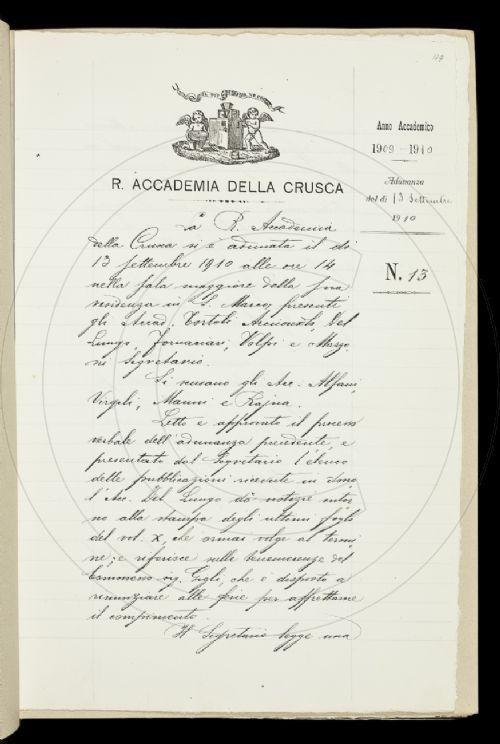 Anno Accademico
1909 - 1910
Adunanza
del dì 13 Settembre
1910
N. 13
R. ACCADEMIA DELLA CRUSCA
La R. Accademia
della Crusca si è adunata il dì
13 settembre 1910 alle ore 14
nella sala maggiore della sua
residenza in S. Marco, presenti
gli Accad. Tortoli Arciconsolo, Del
Lungo, Fornaciari, Volpi e Mazzo
ni Segretario.
Si scusano gli Acc. Alfani,
Virgili, Mauri e Rajna.
Letto e approvato il processo
verbale dell'adunanza precedente, e
presentato dal Segretario l'elenco
delle pubblicazioni ricevute in dono,
l'Acc. Del Lungo dà notizie intor
no alla stampa degli ultimi fogli
del vol. X, che ormai volge al termi
ne; e riferisce sulle benemerenze del
Commesso sig. Gigli, che è disposto a
rinunziare alle ferie per affrettarne
il compimento.
Il Segretario legge una